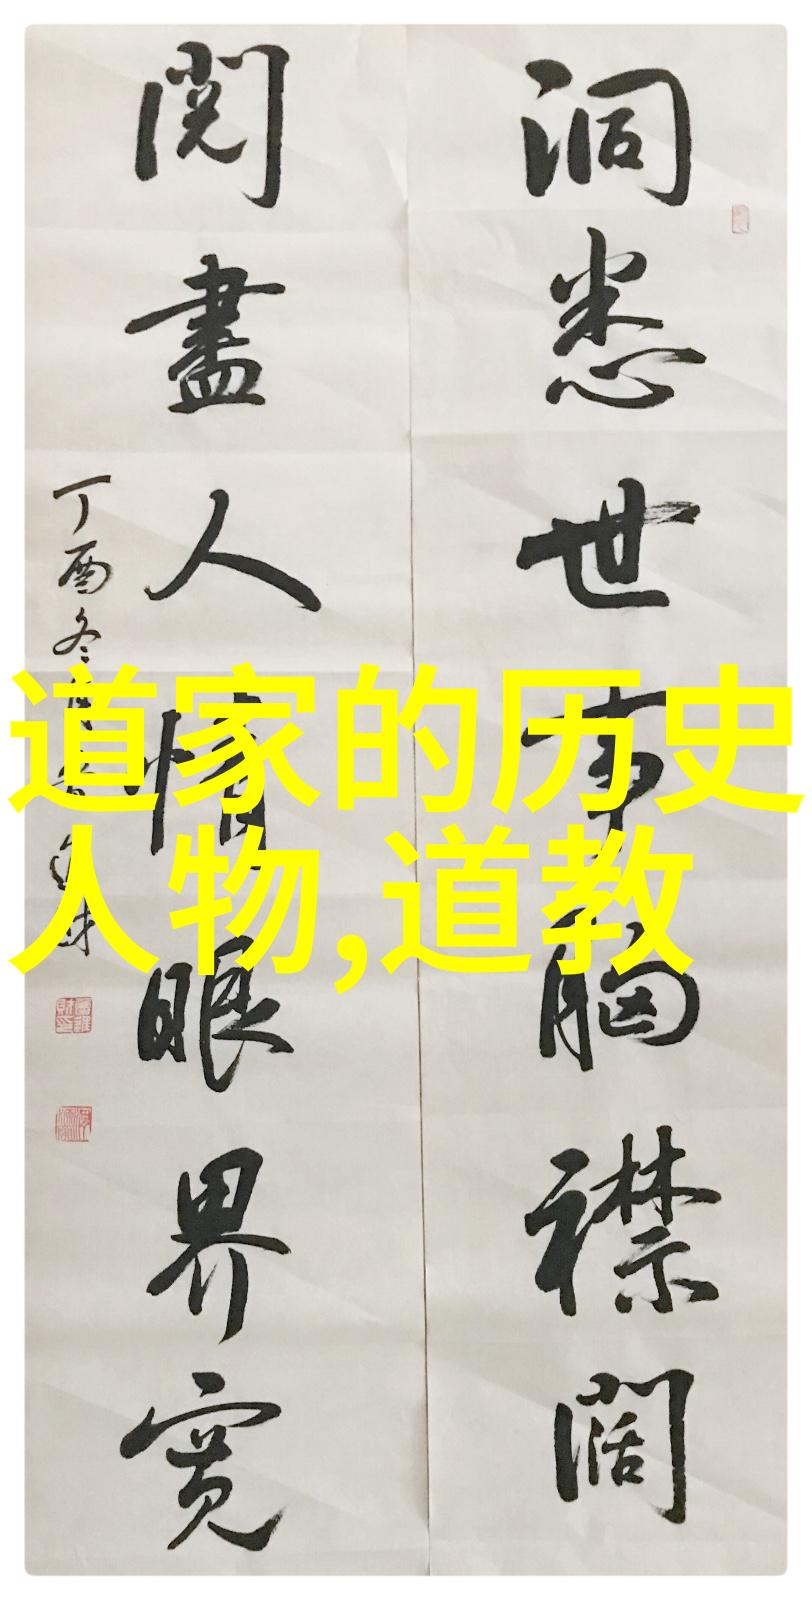 洞悉世事胸襟阔
阅尽人情眼界宽
丁酉冬月
道家的历史
人物,道教